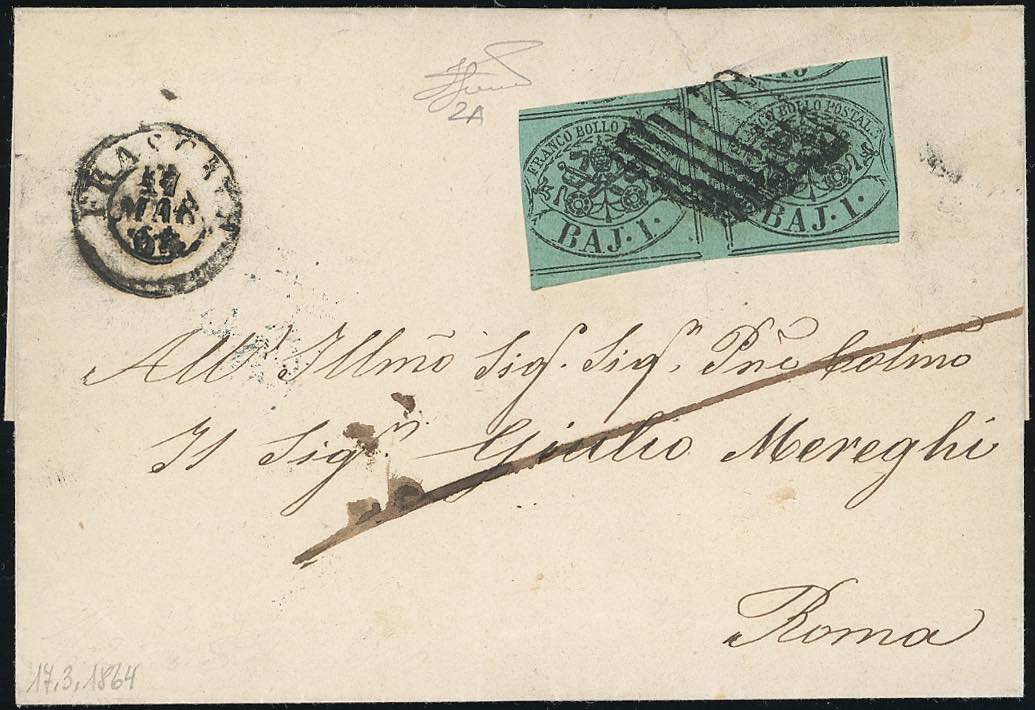 2A
FRASCATI
17
MAR
64
FRANCO BOLLO
BAJ. 1.
FRANCO BOLLO POSTALE
BAJ. 1.
All' Illmo Sig. Sig. Pñe Colmo
Il Sigr. Giulio Mereghi
Roma
17.3.1864